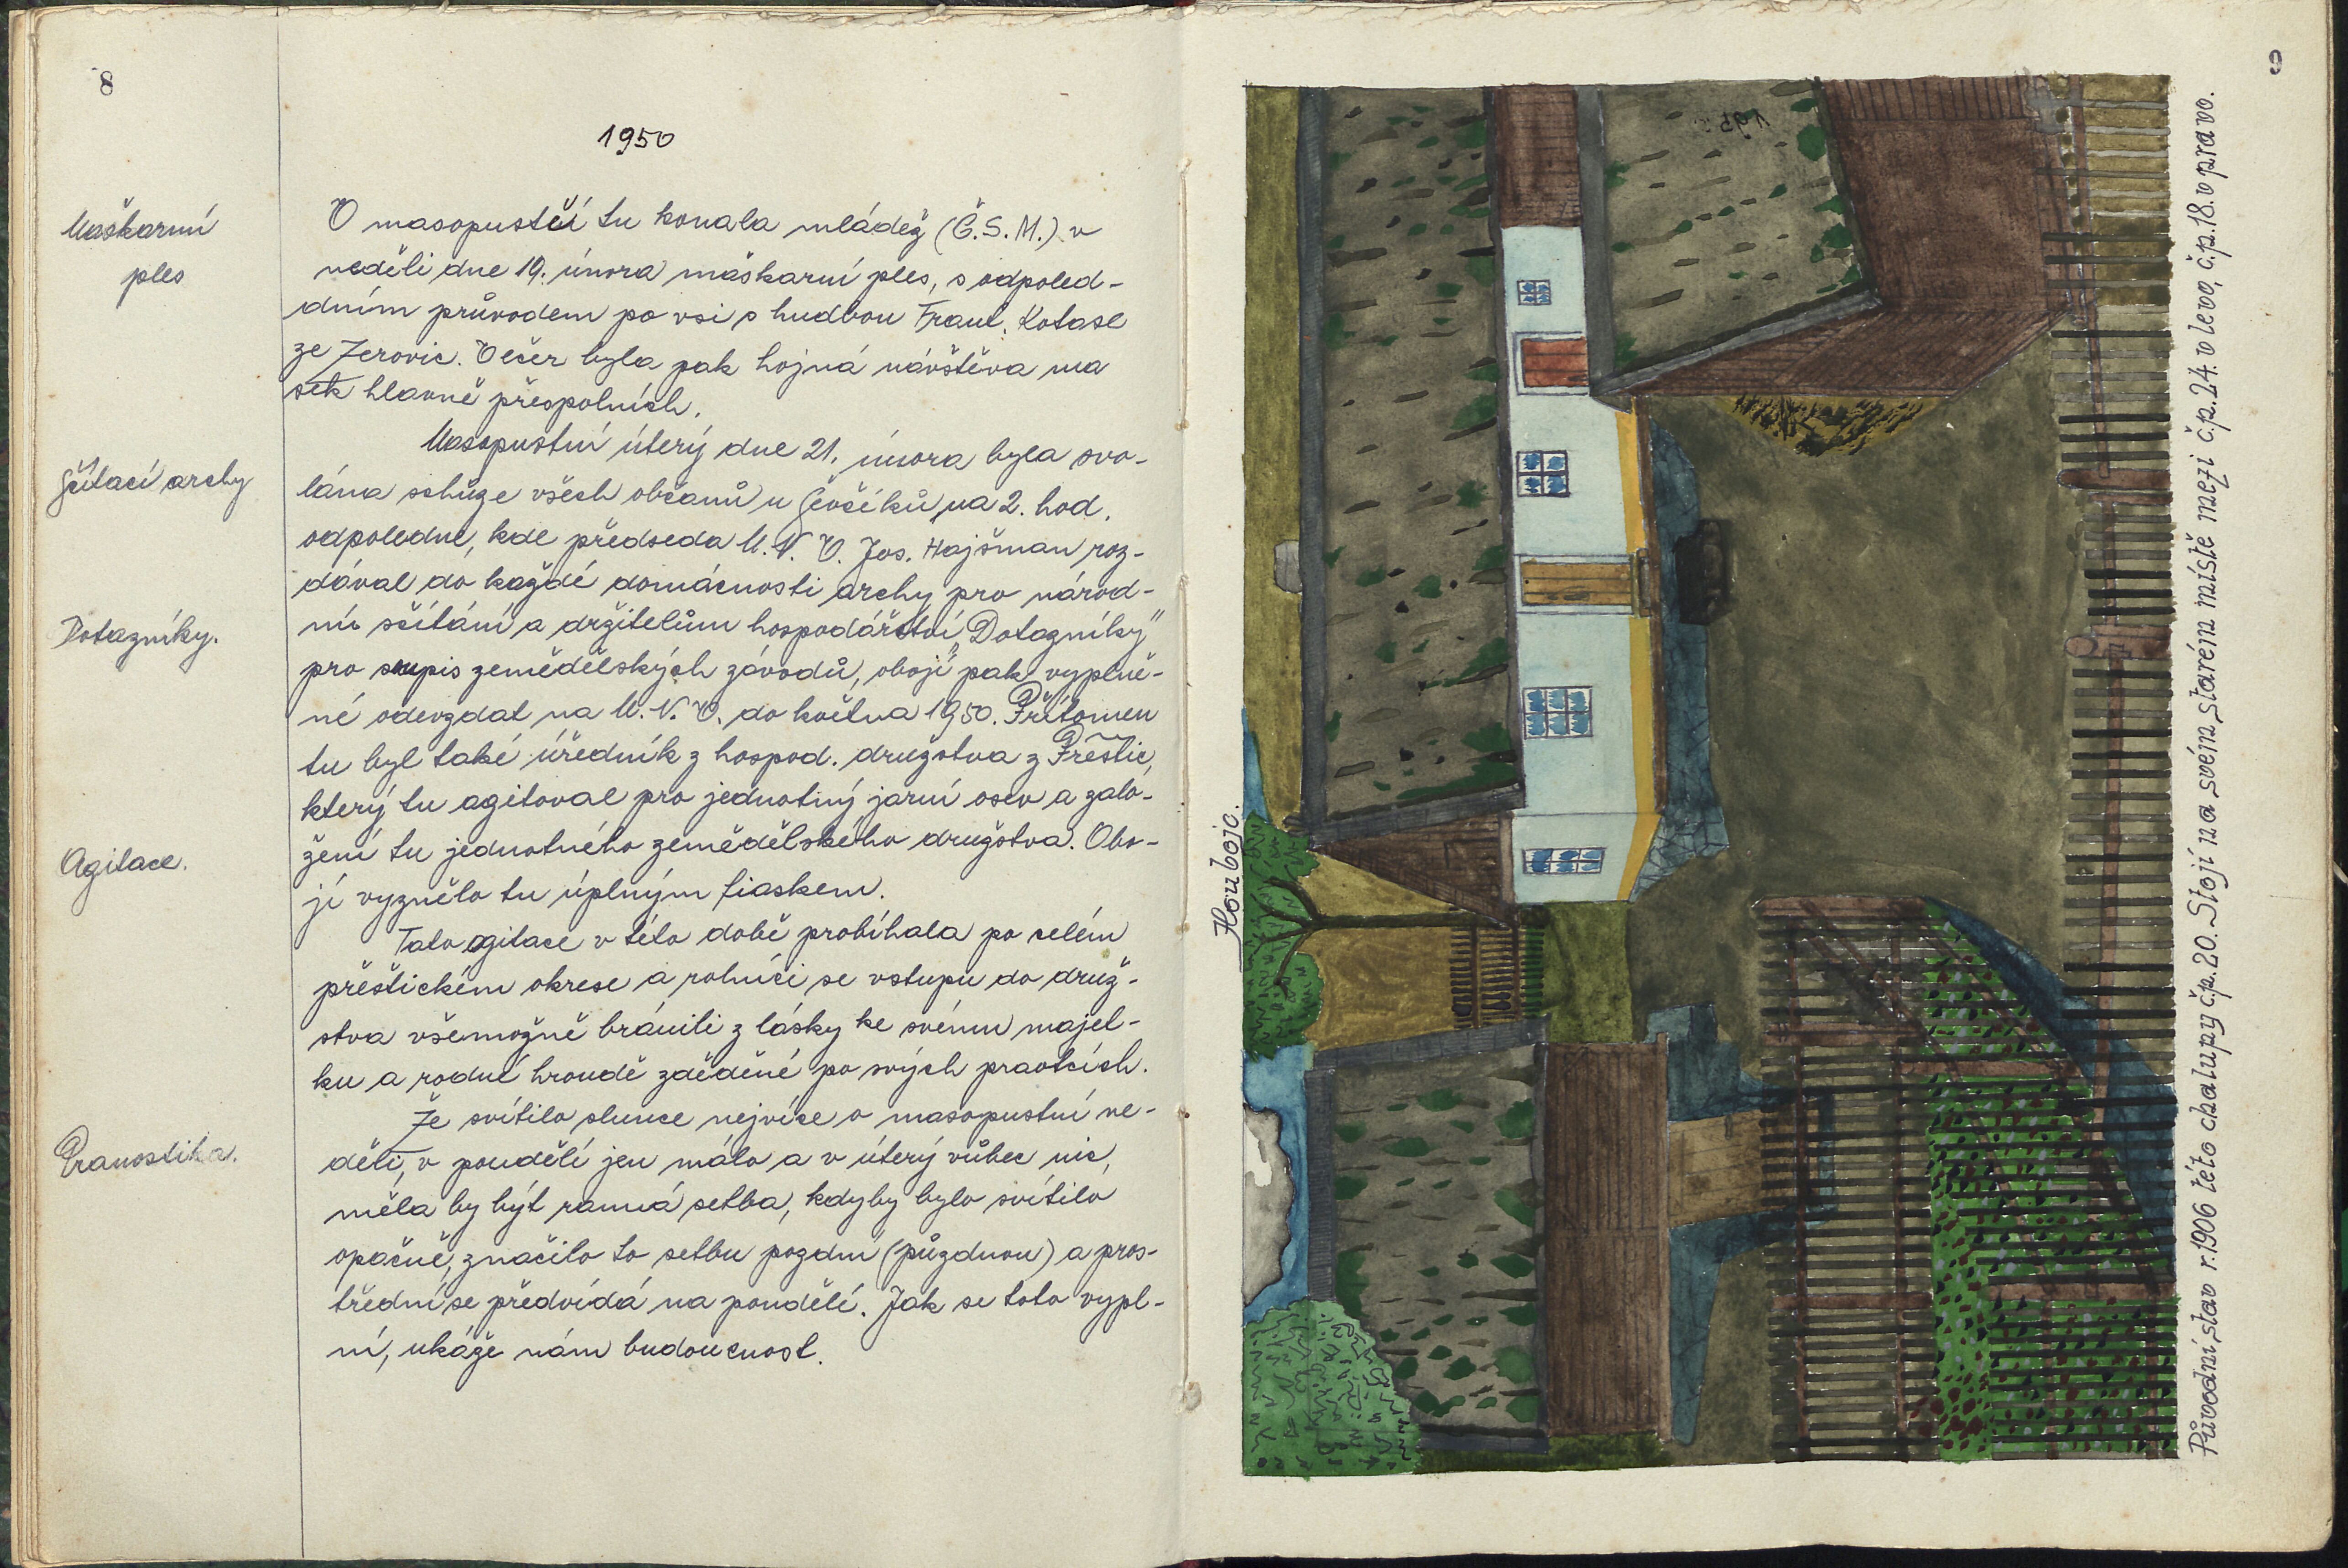 8
1950
Maškarní
ples
O masopustčí tu konala mládež (Č.S.M.) v
neděli dne 19. února maškarní ples, s odpoled-
dním průvodem po vsi s hudbou Frant. Kotase
ze Zerovic. Večer byla pak hojná návštěva ma
sek hlavně přespolních.
Masopustní úterý dne 21. února byla svo-
Sčítací archy
lána schůze všech občanů u Ševčíků, na 2. hod.
odpoledne, kde předseda M.N.V. Jos. Hajšman roz-
dával do každé domácnosti archy pro národ-
Dotazníky.
ní sčítání a držitelům hospodářství „Dotazníky"
pro soupis zemědělských závodů, obojí pak vyplně-
né odevzdat na M.N.V. do května 1950. Přítomen
tu byl také úředník z hospod. družstva z Přeštic,
který tu agitoval pro jednotný jarní osev a zalo-
žení tu jednotného zemědělského družstva. Obo-
Agitace.
jí vyznělo tu úplným fiaskem.
Tato agitace v této době probíhala po celém
přeštickém okrese a rolníci se vstupu do druž-
stva všemožně bránili z lásky ke svému majet-
ku a rodné hroudě zděděné po svých praotcích.
Že svítilo slunce nejvíce o masopustní ne-
Pranostika.
děli, v pondělí jen málo a v úterý vůbec nic,
měla by být ranná setba, kdyby bylo svítilo
opačně, značilo to setbu pozdní (půzdnou) a pros-
třední se předvídá na pondělí. Jak se toto vypl-
ní, ukáže nám budoucnost.
9
Houbojc.
Původní stav r.1906 této chalupy č.p.20. Stojí na svém starém místě mezi č.p.24. v levo, č.p.18. v pravo.